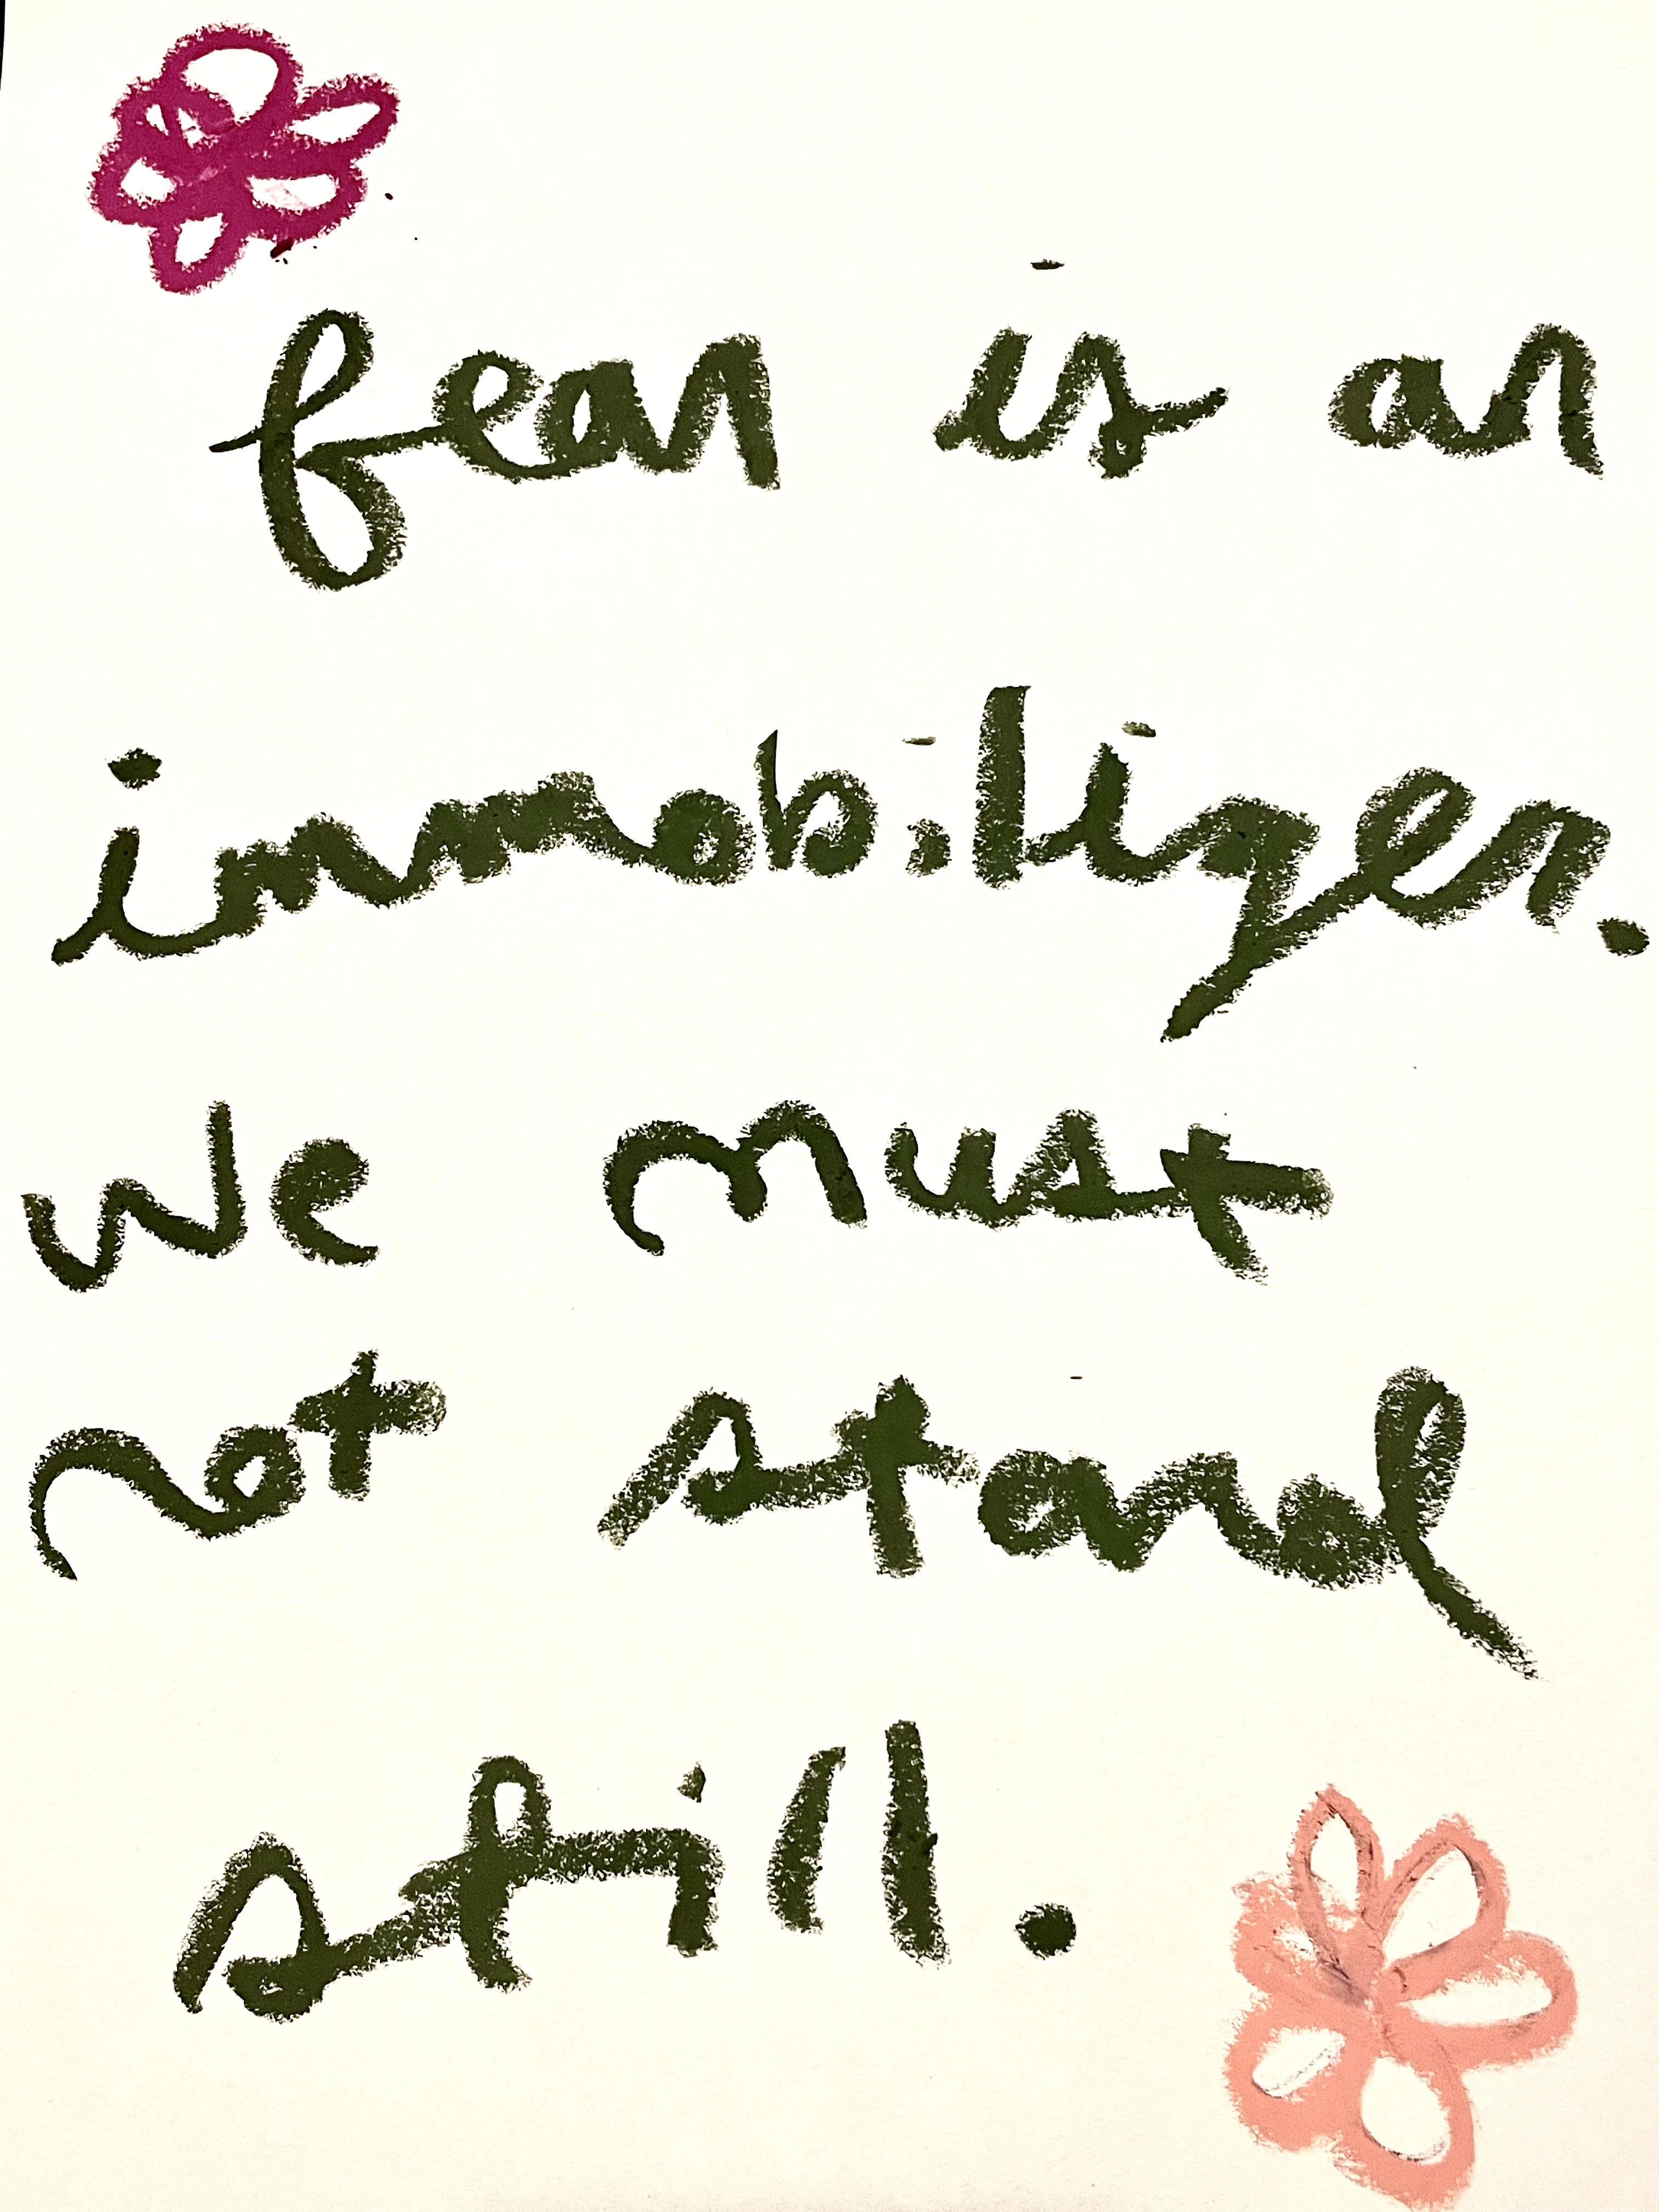 fear is an
immobilizer.
we must
not stand
still.